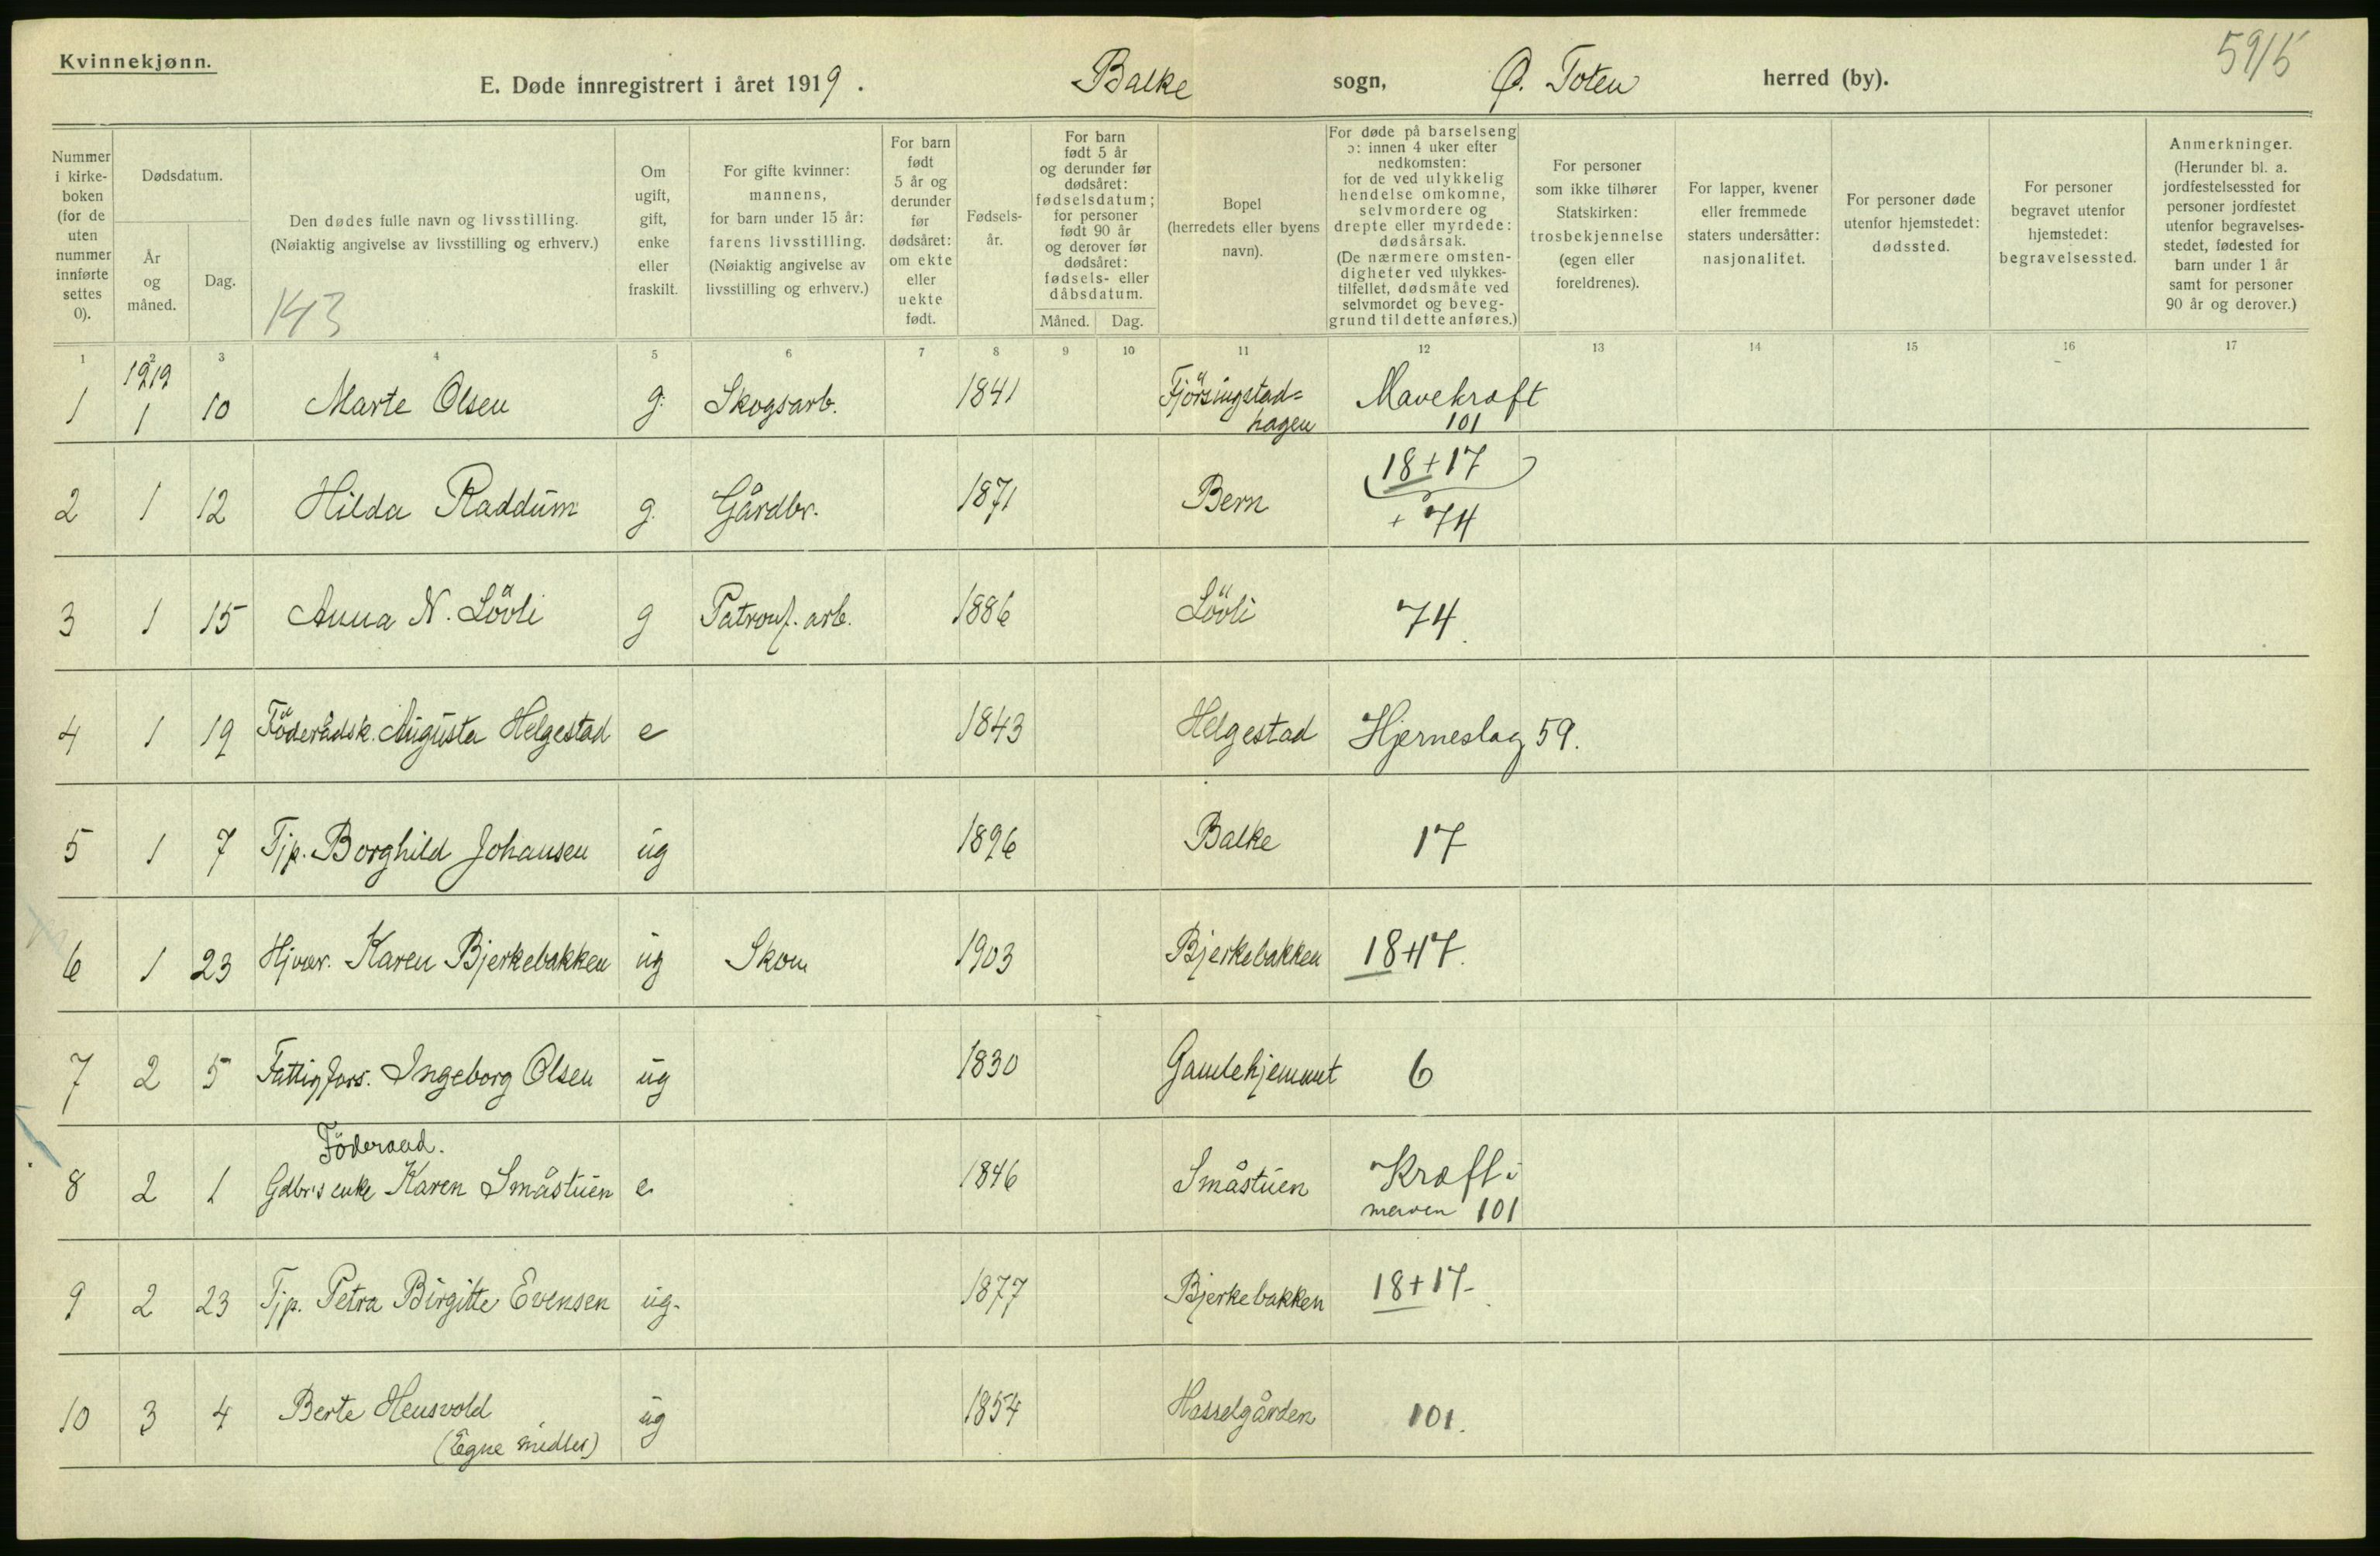 Kvinnekjønn.
5915
E. Døde innregistrert i året 1919. Balke sogn, Ø. Toten herred (by).
Nummer i kirke-boken (for de uten nummer innførte settes 0).
Dødsdatum.
År og måned.
Dag.
Den dødes fulle navn og livsstilling.
(Nøiaktig angivelse av livsstilling og erhverv.)
143
Om ugift, gift, enke eller fraskilt.
For gifte kvinner: mannens, for barn under 15 år: farens livsstilling. (Nøiaktig angivelse av livsstilling og erhverv.)
For barn født 5 år og derunder før dødsåret: om ekte eller uekte født.
Fødsels-år.
For barn født 5 år og derunder før dødsåret: fødselsdatum; for personer født 90 år og derover før dødsåret: fødsels- eller dåbsdatum.
Måned. Dag.
Bopel (herredets eller byens navn).
For døde på barselseng ɔ: innen 4 uker efter nedkomsten: for de ved ulykkelig hendelse omkomne, selvmordere og drepte eller myrdede: dødsårsak. (De nærmere omsten-digheter ved ulykkes-tilfellet, dødsmåte ved selvmordet og beveg-grund til dette anføres.)
For personer som ikke tilhører Statskirken: trosbekjennelse (egen eller foreldrenes).
For lapper, kvener eller fremmede staters undersåtter: nasjonalitet.
For personer døde utenfor hjemstedet: dødssted.
For personer begravet utenfor hjemstedet: begravelsessted.
Anmerkninger. (Herunder bl. a. jordfestelsessted for personer jordfestet utenfor begravelses-stedet, fødested for barn under 1 år samt for personer 90 år og derover.)
1 2 3 4 5 6 7 8 9 10 11 12 13 14 15 16 17
1919
1 1 10 Marte Olsen g. Skogsarb. 1841 Fjörsingstad=hagen Mavekræft 101
2 1 12 Hilda Raddum g. Gårdbr. 1871 Bern (18+17) + 74
3 1 15 Anna N. Lövli g Patronf. arb. 1886 Lövli 74.
4 1 19 Föderådsk. Augusta Helgestad e 1843 Helgestad Hjerneslag 59.
5 1 7 Tjp. Borghild Johansen ug 1896 Balke 17
6 1 23 Hjvær. Karen Bjerkebakken ug Skom 1903 Bjerkebakken 18+17.
7 2 5 Fattigfors. Ingeborg Olsen ug 1830 Gamlehjemmet 6
Föderaad.
8 2 1 Gdbr's enke Karen Småstuen e 1846 Småstuen Kræft i maven 101
9 2 23 Tjp. Petra Birgitte Evensen ug. 1877 Bjerkebakken 18+17-
10 3 4 Berte Heusvold ug 1854 Hasselgården 101.
(Egne midler)